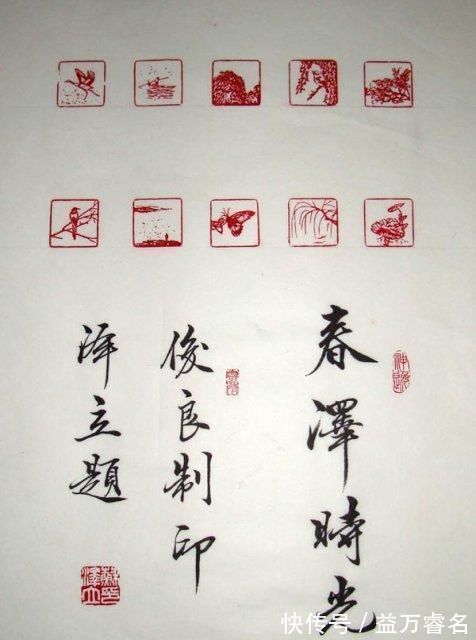 春澤時光
俊良制印
泽立题
快传号/益万睿名